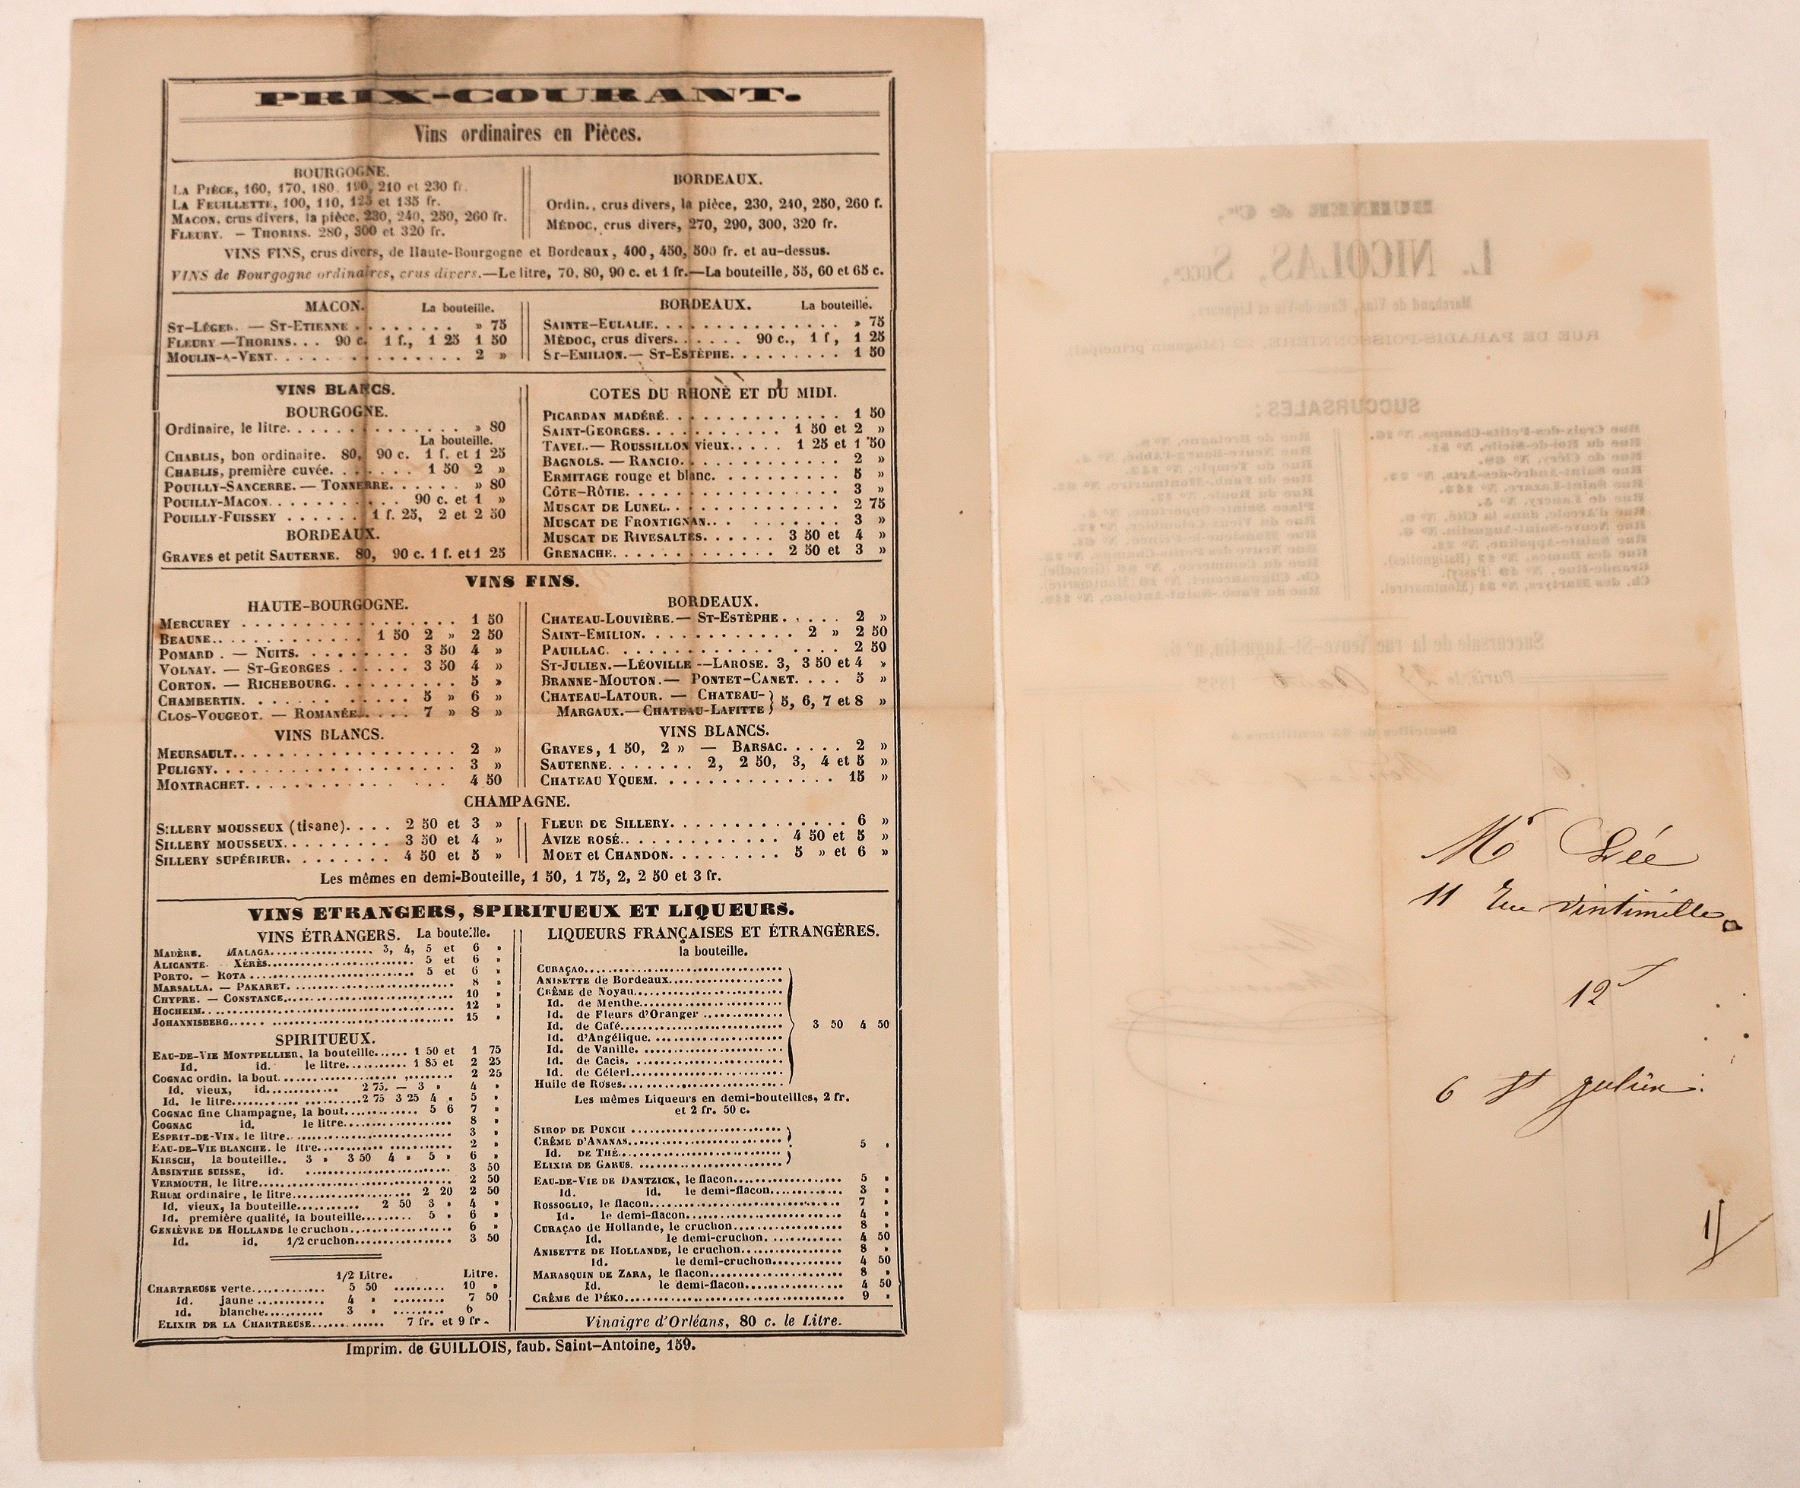 PRIX-COURANT.
Vins ordinaires en Pièces.
BOURGOGNE.
LA PIÈCE, 160, 170, 180, 190, 210 et 230 fr.
LA FEUILLETTE, 100, 110, 125 et 135 fr.
MACON, crus divers, la pièce, 230, 240, 250, 260 fr.
FLEURY. — THORINS. 280, 300 et 320 fr.
BORDEAUX.
Ordin., crus divers, la pièce, 230, 240, 250, 260 f.
MÉDOC, crus divers, 270, 290, 300, 320 fr.
VINS FINS, crus divers, de Haute-Bourgogne et Bordeaux, 400, 450, 500 fr. et au-dessus.
VINS de Bourgogne ordinaires, crus divers.—Le litre, 70, 80, 90 c. et 1 fr.—La bouteille, 55, 60 et 65 c.
MACON. La bouteille.
ST-LÉGER. — ST-ETIENNE . . . . . . . . » 75
FLEURY —THORINS. . . 90 c. 1 f., 1 25 1 50
MOULIN-A-VENT. . . . . . . . . . . . . 2 »
BORDEAUX. La bouteille.
SAINTE-EULALIE. . . . . . . . . . . . . . » 75
MÉDOC, crus divers. . . . . . 90 c., 1 f, 1 25
ST-EMILION.— ST-ESTÈPHE. . . . . . . . . 1 50
VINS BLANCS.
BOURGOGNE.
Ordinaire, le litre. . . . . . . . . . . . . » 80
La bouteille.
CHABLIS, bon ordinaire. 80, 90 c. 1 f. et 1 25
CHABLIS, première cuvée. . . . . . . 1 50 2 »
POUILLY-SANCERRE. — TONNERRE. . . . . . » 80
POUILLY-MACON. . . . . . . . . . 90 c. et 1 »
POUILLY-FUISSEY . . . . . . 1 f. 25, 2 et 2 50
BORDEAUX.
GRAVES et petit SAUTERNE. 80, 90 c. 1 f. et 1 25
COTES DU RHONE ET DU MIDI.
PICARDAN MADÉRÉ. . . . . . . . . . . . . 1 50
SAINT-GEORGES. . . . . . . . . . 1 50 et 2 »
TAVEL.— ROUSSILLON vieux. . . . . 1 25 et 1 50
BAGNOLS. — RANCIO. . . . . . . . . . . . 2 »
ERMITAGE rouge et blanc. . . . . . . . . . 5 »
CÔTE-RÔTIE. . . . . . . . . . . . . . . . 3 »
MUSCAT DE LUNEL. . . . . . . . . . . . . 2 75
MUSCAT DE FRONTIGNAN. . . . . . . . . . 3 »
MUSCAT DE RIVESALTES. . . . . . . 3 50 et 4 »
GRENACHE. . . . . . . . . . . . . 2 50 et 3 »
VINS FINS.
HAUTE-BOURGOGNE.
MERCUREY . . . . . . . . . . . . . . . . 1 50
BEAUNE. . . . . . . . . . . . 1 50 2 » 2 50
POMARD . — NUITS. . . . . . . . . 3 50 4 »
VOLNAY. — ST-GEORGES . . . . . . 3 50 4 »
CORTON. — RICHEBOURG. . . . . . . . . . 5 »
CHAMBERTIN. . . . . . . . . . . . . 5 » 6 »
CLOS-VOUGEOT. — ROMANÉE. . . . . 7 » 8 »
VINS BLANCS.
MEURSAULT. . . . . . . . . . . . . . . . 2 »
PULIGNY. . . . . . . . . . . . . . . . . 3 »
MONTRACHET. . . . . . . . . . . . . . . 4 50
BORDEAUX.
CHATEAU-LOUVIÈRE.— ST-ESTÈPHE . . . . . 2 »
SAINT-EMILION. . . . . . . . . . . . 2 » 2 50
PAUILLAC. . . . . . . . . . . . . . . . . 2 50
ST-JULIEN.—LÉOVILLE —LAROSE. 3, 3 50 et 4 »
BRANNE-MOUTON.— PONTET-CANET. . . . 5 »
CHATEAU-LATOUR. — CHATEAU-
MARGAUX.— CHATEAU-LAFITTE } 5, 6, 7 et 8 »
VINS BLANCS.
GRAVES, 1 50, 2 » — BARSAC. . . . . 2 »
SAUTERNE. . . . . . . . 2, 2 50, 3, 4 et 5 »
CHATEAU YQUEM. . . . . . . . . . . . . . 15 »
CHAMPAGNE.
SILLERY MOUSSEUX (tisane). . . . 2 50 et 3 »
SILLERY MOUSSEUX. . . . . . . . . 3 50 et 4 »
SILLERY SUPÉRIEUR. . . . . . . . . 4 50 et 5 »
FLEUR DE SILLERY. . . . . . . . . . . . . 6 »
AVIZE ROSÉ. . . . . . . . . . . . 4 50 et 5 »
MOET et CHANDON. . . . . . . . . 5 » et 6 »
Les mêmes en demi-Bouteille, 1 50, 1 75, 2, 2 50 et 3 fr.
VINS ETRANGERS, SPIRITUEUX ET LIQUEURS.
VINS ÉTRANGERS. La bouteille.
MADÈRE. MALAGA.................. 3, 4, 5 et 6 »
ALICANTE XÉRÈS.......................... 5 et 6 »
PORTO. — ROTA .......................... 5 et 6 »
MARSALLA. — PAKARET............................. 8 »
CHYPRE. — CONSTANCE............................. 10 »
HOCHEIM......................................... 12 »
JOHANNISBERG.................................... 15 »
SPIRITUEUX.
EAU-DE-VIE MONTPELLIER, la bouteille...... 1 50 et 1 75
Id. id. le litre........... 1 85 et 2 25
COGNAC ordin. la bout............................ 2 25
Id. vieux, id............ 2 75. — 3 » 4 »
Id. le litre.......................2 75 3 25 4 » 5 »
COGNAC fine Champagne, la bout............ 5 6 7 »
COGNAC id. le litre.................... 8 »
ESPRIT-DE-VIN, le litre........................... 3 »
EAU-DE-VIE BLANCHE, le litre..................... 2 »
KIRSCH, la bouteille.. 3 » 3 50 4 » 5 » 6 »
ABSINTHE SUISSE, id. ........................... 3 50
VERMOUTH, le litre................................ 2 50
RHUM ordinaire, le litre................... 2 20 2 50
Id. vieux, la bouteille........... 2 50 3 » 4 »
Id. première qualité, la bouteille......... 5 » 6 »
GENIÈVRE DE HOLLANDE le cruchon................. 6 »
Id. id. 1/2 cruchon................ 3 50
1/2 Litre. Litre.
CHARTREUSE verte............. 5 50 ......... 10 »
Id. jaune ............ 4 » ......... 7 50
id. blanche........... 3 » ......... 6
ELIXIR DE LA CHARTREUSE.............. 7 fr. et 9 fr.
LIQUEURS FRANÇAISES ET ÉTRANGÈRES.
la bouteille.
CURAÇAO........................................
ANISETTE de Bordeaux...........................
CRÊME de Noyau.................................
Id. de Menthe.............................
Id. de Fleurs d'Oranger ..................
Id. de Café............................... 3 50 4 50
Id. d'Angélique. .........................
Id. de Vanille. ..........................
Id. de Cacis. ............................
Id. de Céleri.............................
Huile de Roses.................................
Les mêmes Liqueurs en demi-bouteilles, 2 fr.
et 2 fr. 50 c.
SIROP DE PUNCH ................................
CRÊME D'ANANAS................................. 5 »
Id. DE THÉ................................
ELIXIR DE GARUS. ..............................
EAU-DE-VIE DE DANTZICK, le flacon................... 5 »
Id. Id. le demi-flacon............. 3 »
ROSSOGLIO, le flacon................................ 7 »
Id. le demi-flacon........................... 4 »
CURAÇAO de Hollande, le cruchon..................... 8 »
Id. le demi-cruchon. ............ 4 50
ANISETTE DE HOLLANDE, le cruchon.................... 8 »
Id. le demi-cruchon............. 4 50
MARASQUIN DE ZARA, le flacon........................ 8 »
Id. le demi-flacon................. 4 50
CRÊME de PÉKO....................................... 9 »
Vinaigre d'Orléans, 80 c. le Litre.
Imprim. de GUILLOIS, faub. Saint-Antoine, 159.
L. NICOLAS, Succr,
Marchand de Vins, Eaux-de-Vie et Liqueurs,
RUE DE PARADIS-POISSONNIÈRE, 22 (Magasin principal).
SUCCURSALES:
Succursale de la rue Neuve-St-Augustin, n° 6.
Mr Sée
11 Rue Vintimille
12 f
6 St Julien